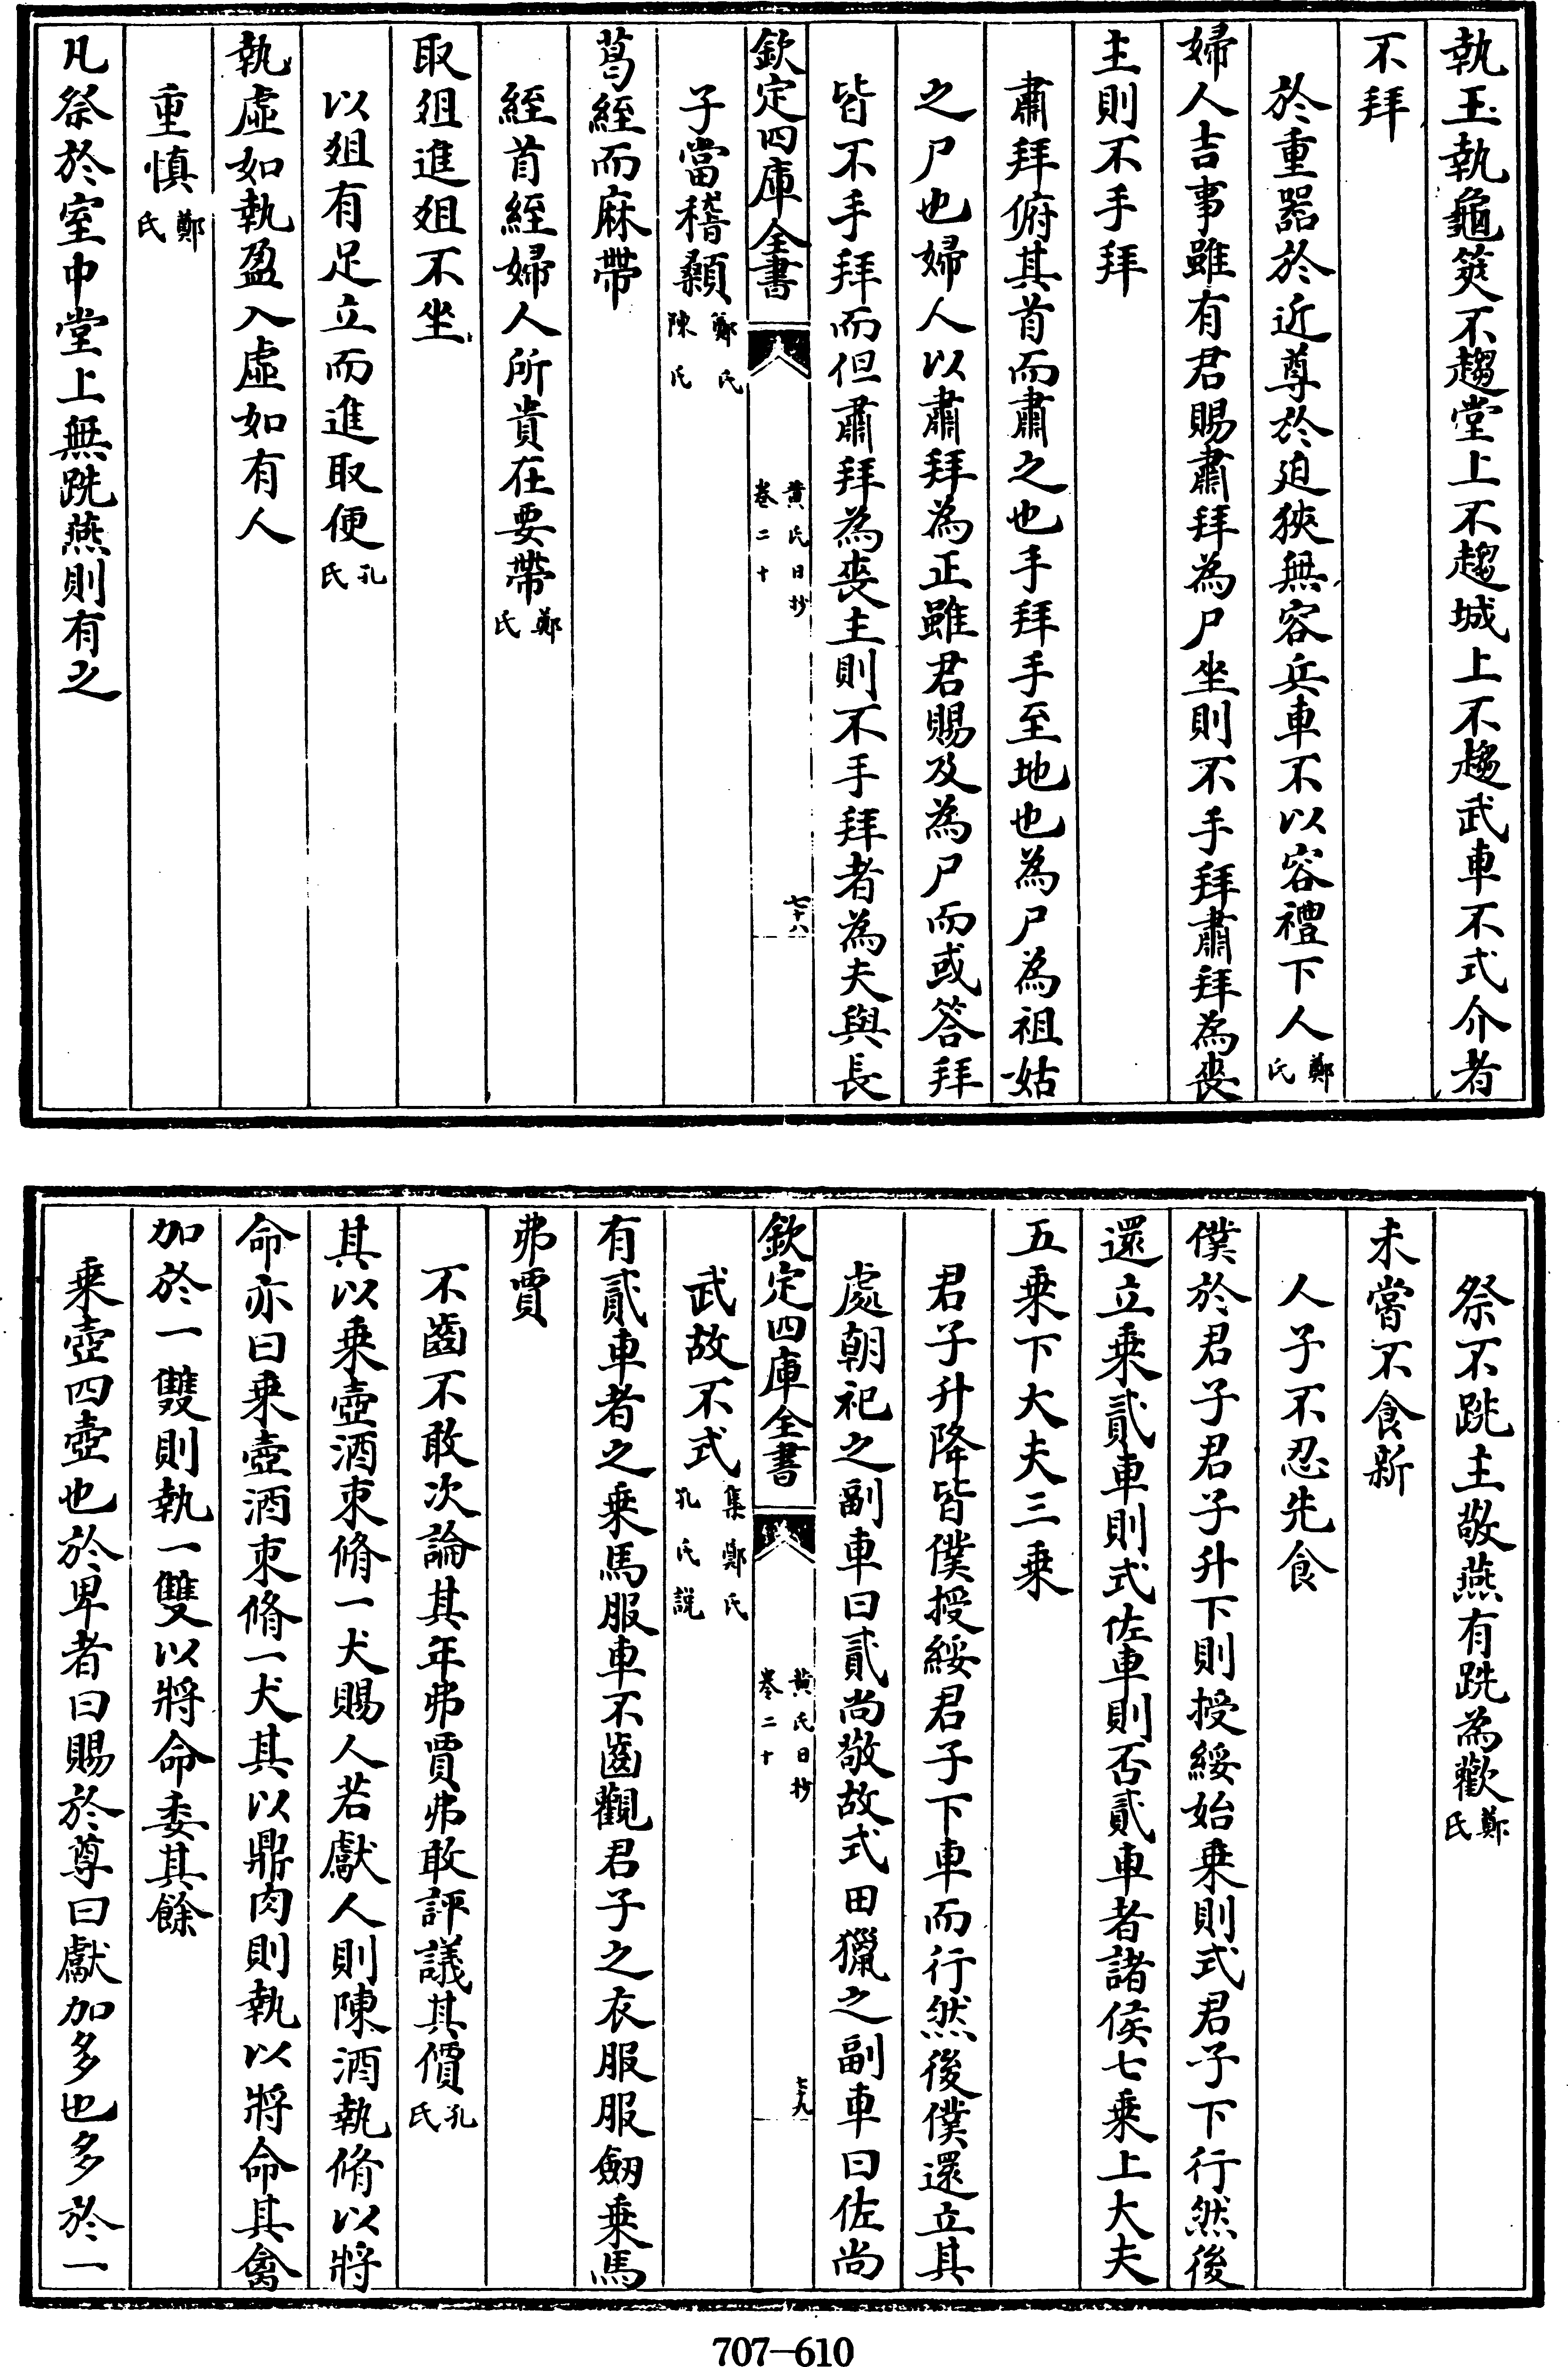 執玉執龜筴不趨堂上不趨城上不趨武車不式介者
不拜
於重器於近尊於迫狹無容兵車不以容禮下人鄭氏
婦人吉事雖有君賜肅拜為尸坐則不手拜肅拜為喪
主則不手拜
肅拜俯其首而肅之也手拜手至地也為尸為祖姑
之尸也婦人以肅拜為正雖君賜及為尸而或答拜
皆不手拜而但肅拜為喪主則不手拜者為夫與長
欽定四庫全書
黃氏日抄
卷二十
七十八
子當稽顙鄭氏陳氏
葛絰而麻帶
絰首絰婦人所貴在要帶鄭氏
取俎進俎不坐
以俎有足立而進取便孔氏
執虛如執盈入虛如有人
重慎鄭氏
凡祭於室中堂上無跣燕則有之
祭不跣主敬燕有跣為歡鄭氏
未嘗不食新
人子不忍先食
僕於君子君子升下則授綏始乗則式君子下行然後
還立乗貳車則式佐車則否貳車者諸侯七乗上大夫
五乗下大夫三乗
君子升降皆僕授綏君子下車而行然後僕還立其
處朝祀之副車曰貳尚敬故式田獵之副車曰佐尚
欽定四庫全書
黃氏日抄
卷二十
七十九
武故不式集鄭氏孔氏説
有貳車者之乗馬服車不齒觀君子之衣服服劒乗馬
弗賈
不齒不敢次論其年弗賈弗敢評議其價孔氏
其以乗壺酒束脩一犬賜人若獻人則陳酒執脩以將
命亦曰乗壺酒束脩一犬其以鼎肉則執以將命其禽
加於一雙則執一雙以將命委其餘
乗壺四壺也於卑者曰賜於尊曰獻加多也多於一
707-610